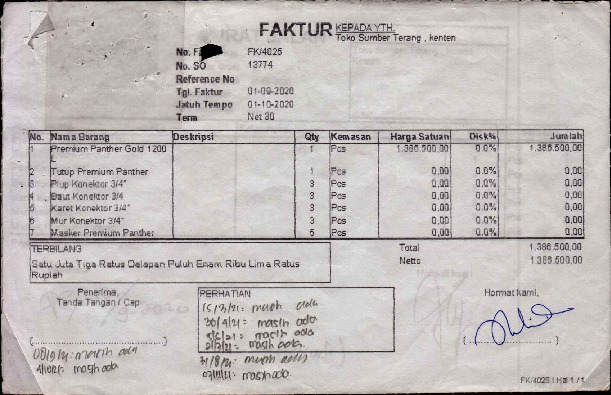 FAKTUR KEPADA YTH.
Toko Sumber Terang , kenten
No. FK/4025
No. SO 13774
Reference No
Tgl. Faktur 01-09-2020
Jatuh Tempo 01-10-2020
Term Net 30
No. Nama Barang Deskripsi Qty Kemasan Harga Satuan Disk% Jumlah
1 Premium Panther Gold 1200 L 1 Pcs 1.386.500,00 0.0% 1.386.500,00
2 Tutup Premium Panther 1 Pcs 0,00 0.0% 0,00
3 Plup Konektor 3/4" 3 Pcs 0,00 0.0% 0,00
4 Baut Konektor 3/4 3 Pcs 0,00 0.0% 0,00
5 Karet Konektor 3/4" 3 Pcs 0,00 0.0% 0,00
6 Mur Konektor 3/4" 3 Pcs 0,00 0.0% 0,00
7 Masker Premium Panther 5 Pcs 0,00 0.0% 0,00
TERBILANG
Satu Juta Tiga Ratus Delapan Puluh Enam Ribu Lima Ratus
Rupiah
Total 1.386.500,00
Netto 1.386.500,00
Penerima,
Tanda Tangan / Cap
PERHATIAN
masih ada
30/4/21: masih ada
masih ada
masih ada
31/8/21: masih ada
masih ada
masih ada
masih ada
Hormat kami,
FK/4025 / Hal 1 / 1